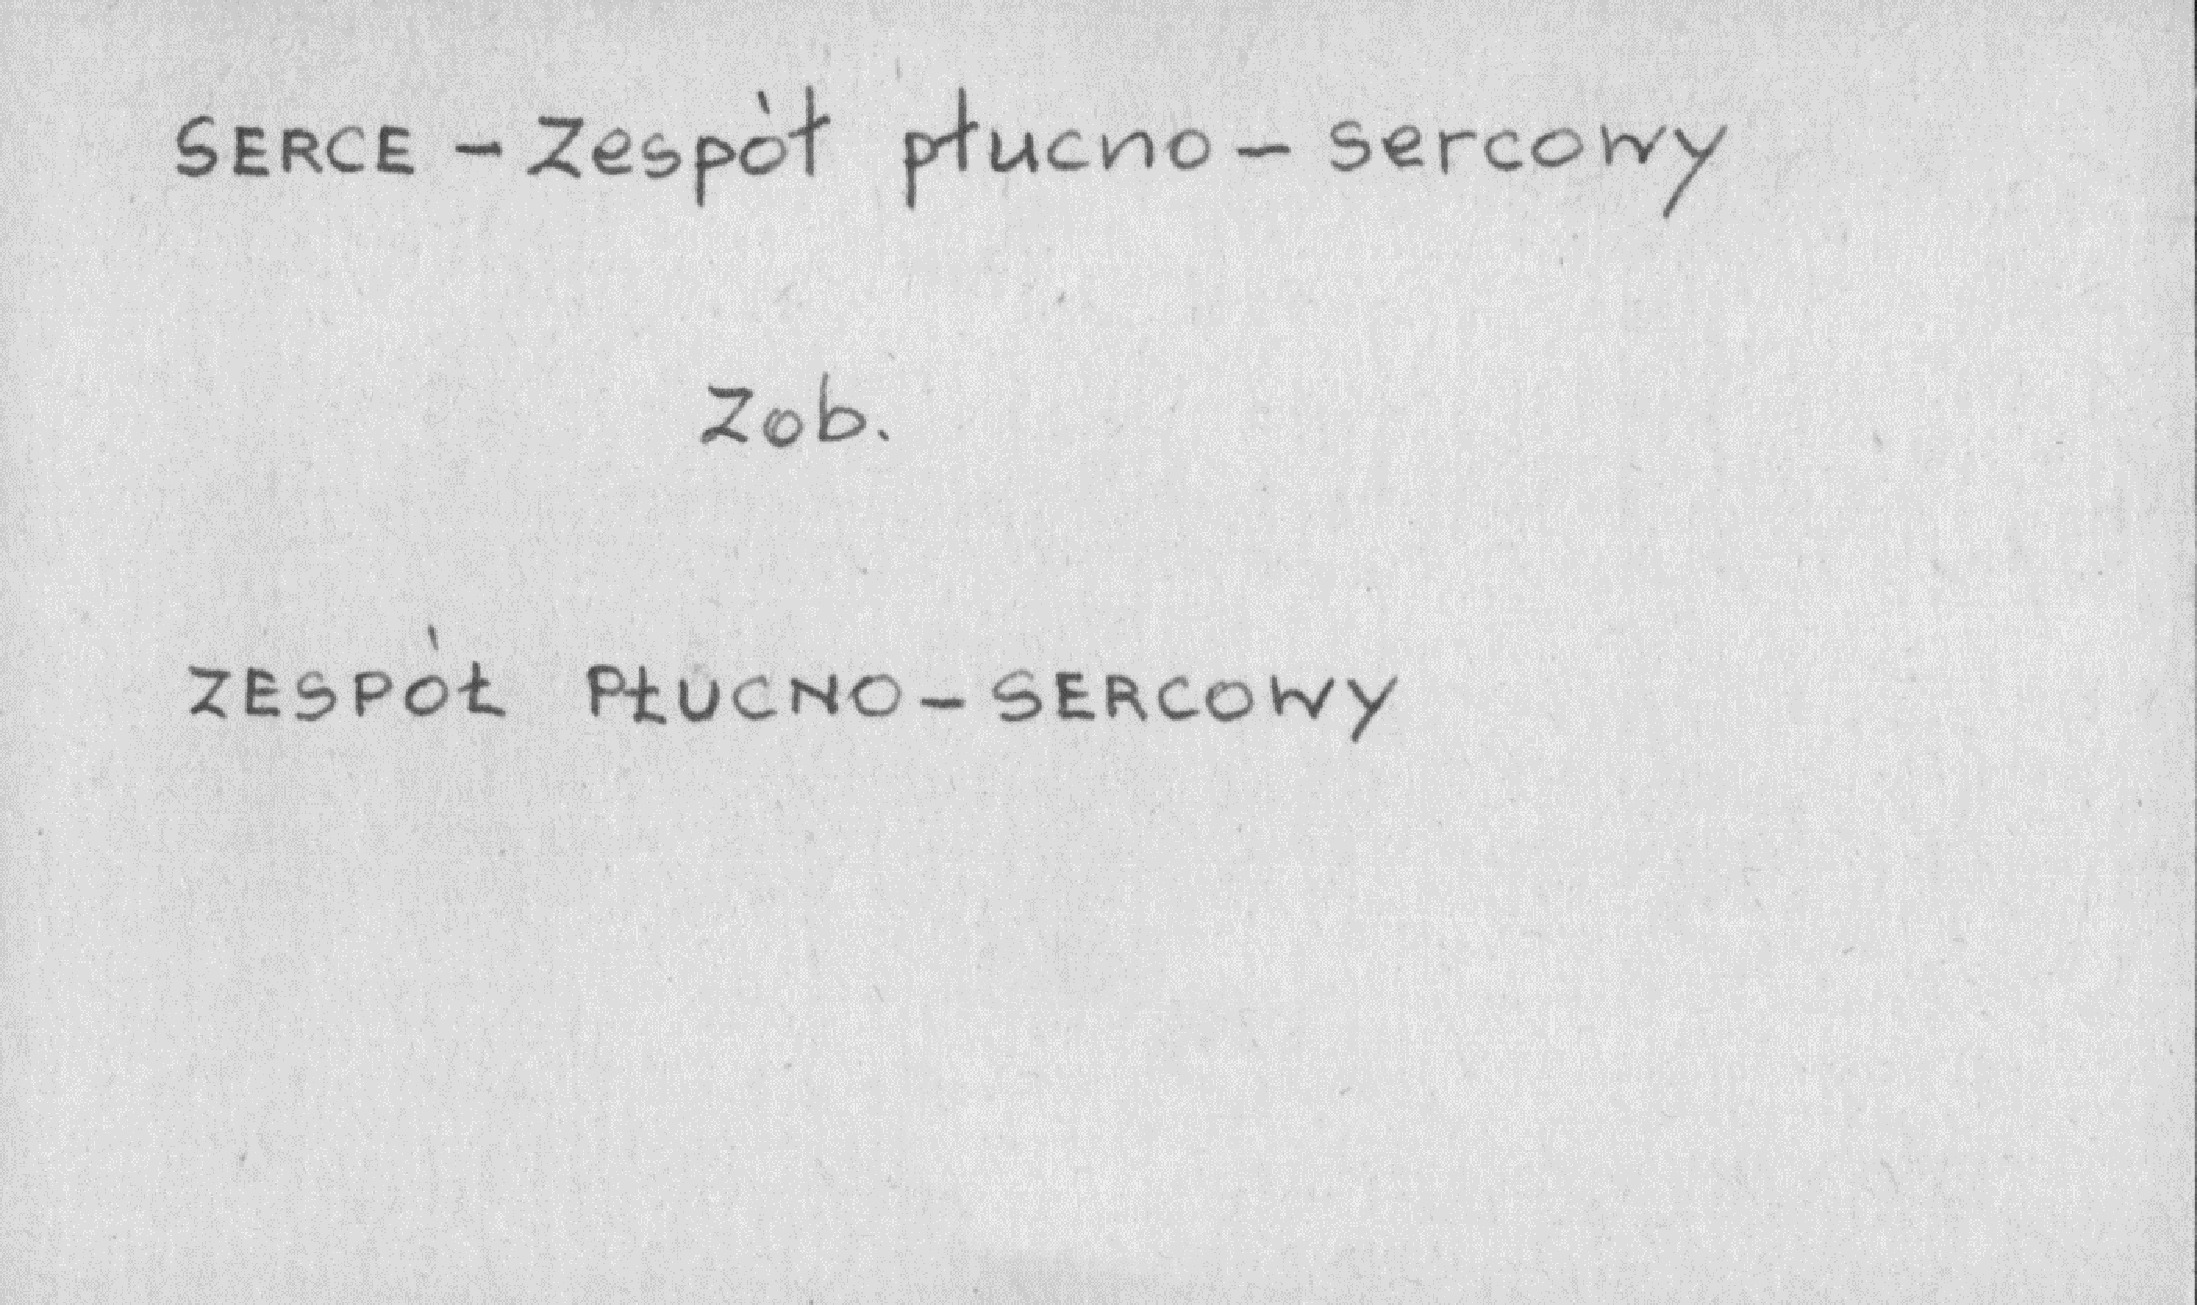 SERCE - Zespół płucno - sercowy
Zob.
ZESPÓŁ PŁUCNO - SERCOWY